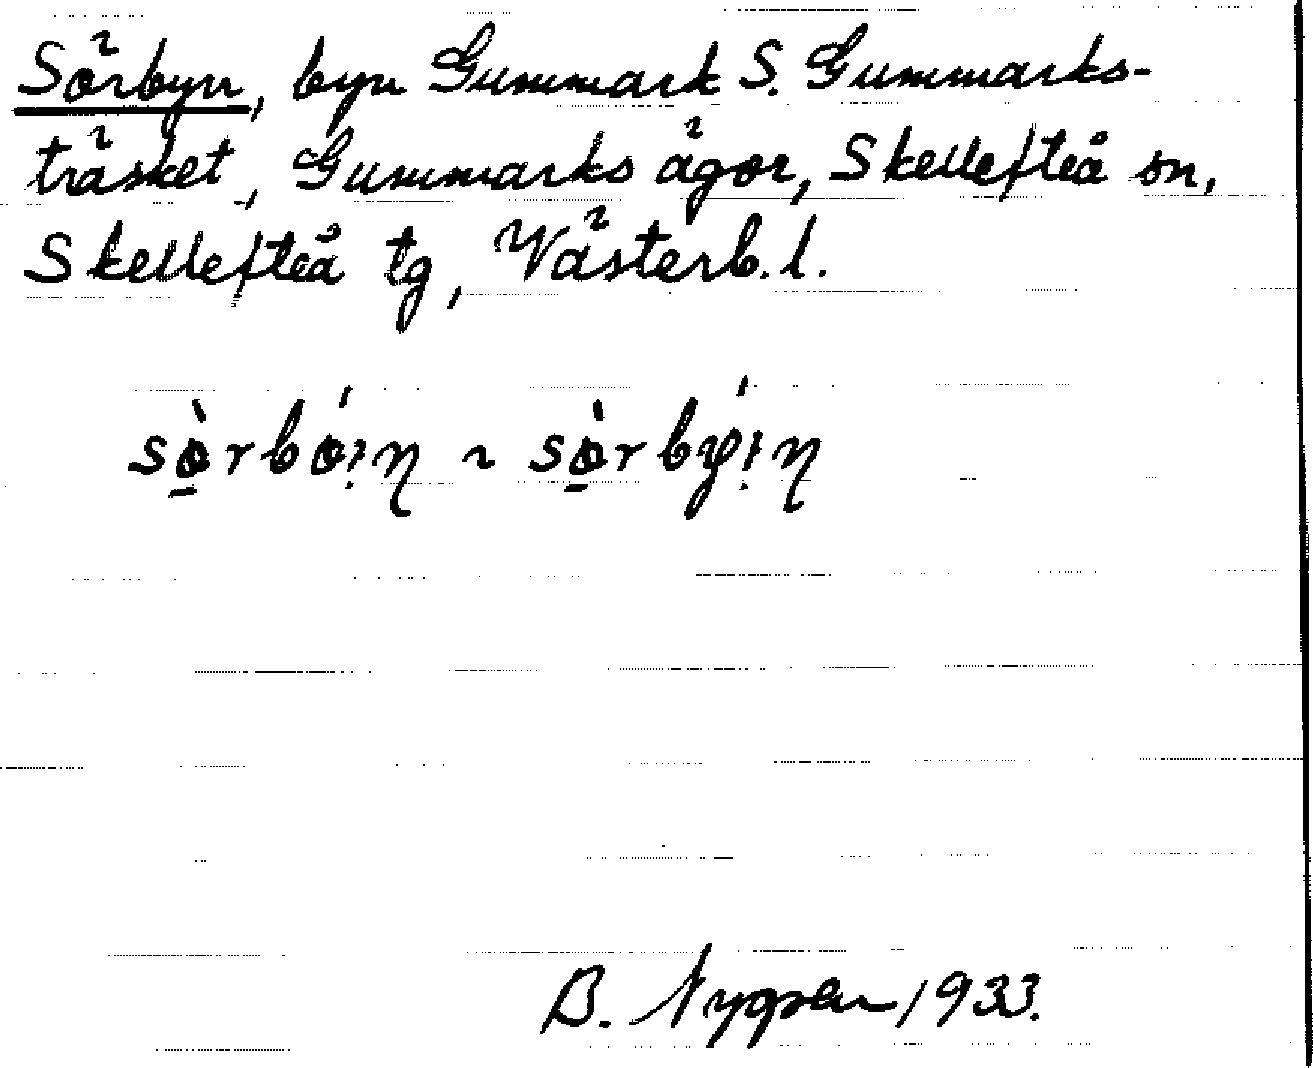 Sörbyn, byn Gummark S. Gummarks-
träsket, Gummarks ägor, Skellefteå sn,
Skellefteå tg, Västerb. l.
sø̠̀rbǿ:η ~ sø̠̀rbý:η
B. Nygren 1933.